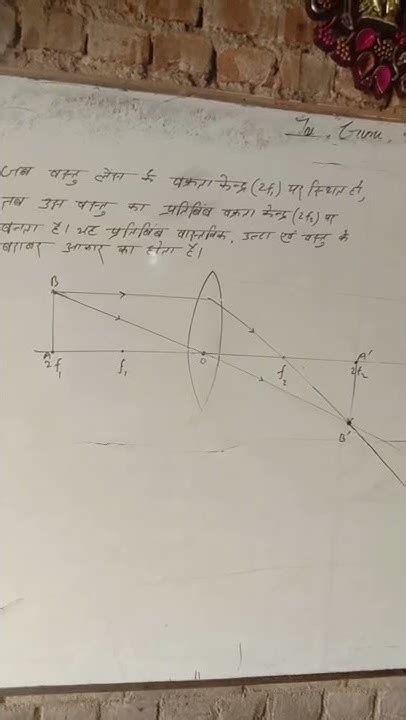 जब वस्तु लेंस के वक्रता केन्द्र (2f₁) पर स्थित हो,
तब उस वस्तु का प्रतिबिंब वक्रता केन्द्र (2f₂) पर
बनता है। यह प्रतिबिंब वास्तविक, उल्टा एवं वस्तु के
बराबर आकार का होता है।
B
A O A'
2f₁ f₁ f₂ 2f₂
B'